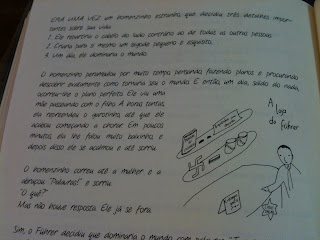 ERA UMA VEZ um homenzinho estranho que decidiu três detalhes impor-
tantes sobre sua vida:
1. Ele repartiria o cabelo do lado contrário ao de todas as outras pessoas.
2. Criaria para si mesmo um bigode pequeno e esquisito.
3. Um dia, ele dominaria o mundo.
O homenzinho perambulou por muito tempo pensando, fazendo planos e procurando
descobrir exatamente como tornaria seu o mundo. E então, um dia, saído do nada,
ocorreu-lhe o plano perfeito. Ele viu uma
mãe passeando com o filho. A certa altura,
ela repreendeu o garotinho, até que ele
acabou começando a chorar. Em poucos
minutos, ela lhe falou muito baixinho, e
depois disso ele se acalmou e até sorriu.
A loja
do Führer
O homenzinho correu até a mulher e a
abraçou. "Palavras!" e sorriu.
"O quê?"
Mas não houve resposta. Ele já se fora.
Sim, o Führer decidiu que dominaria o mundo com